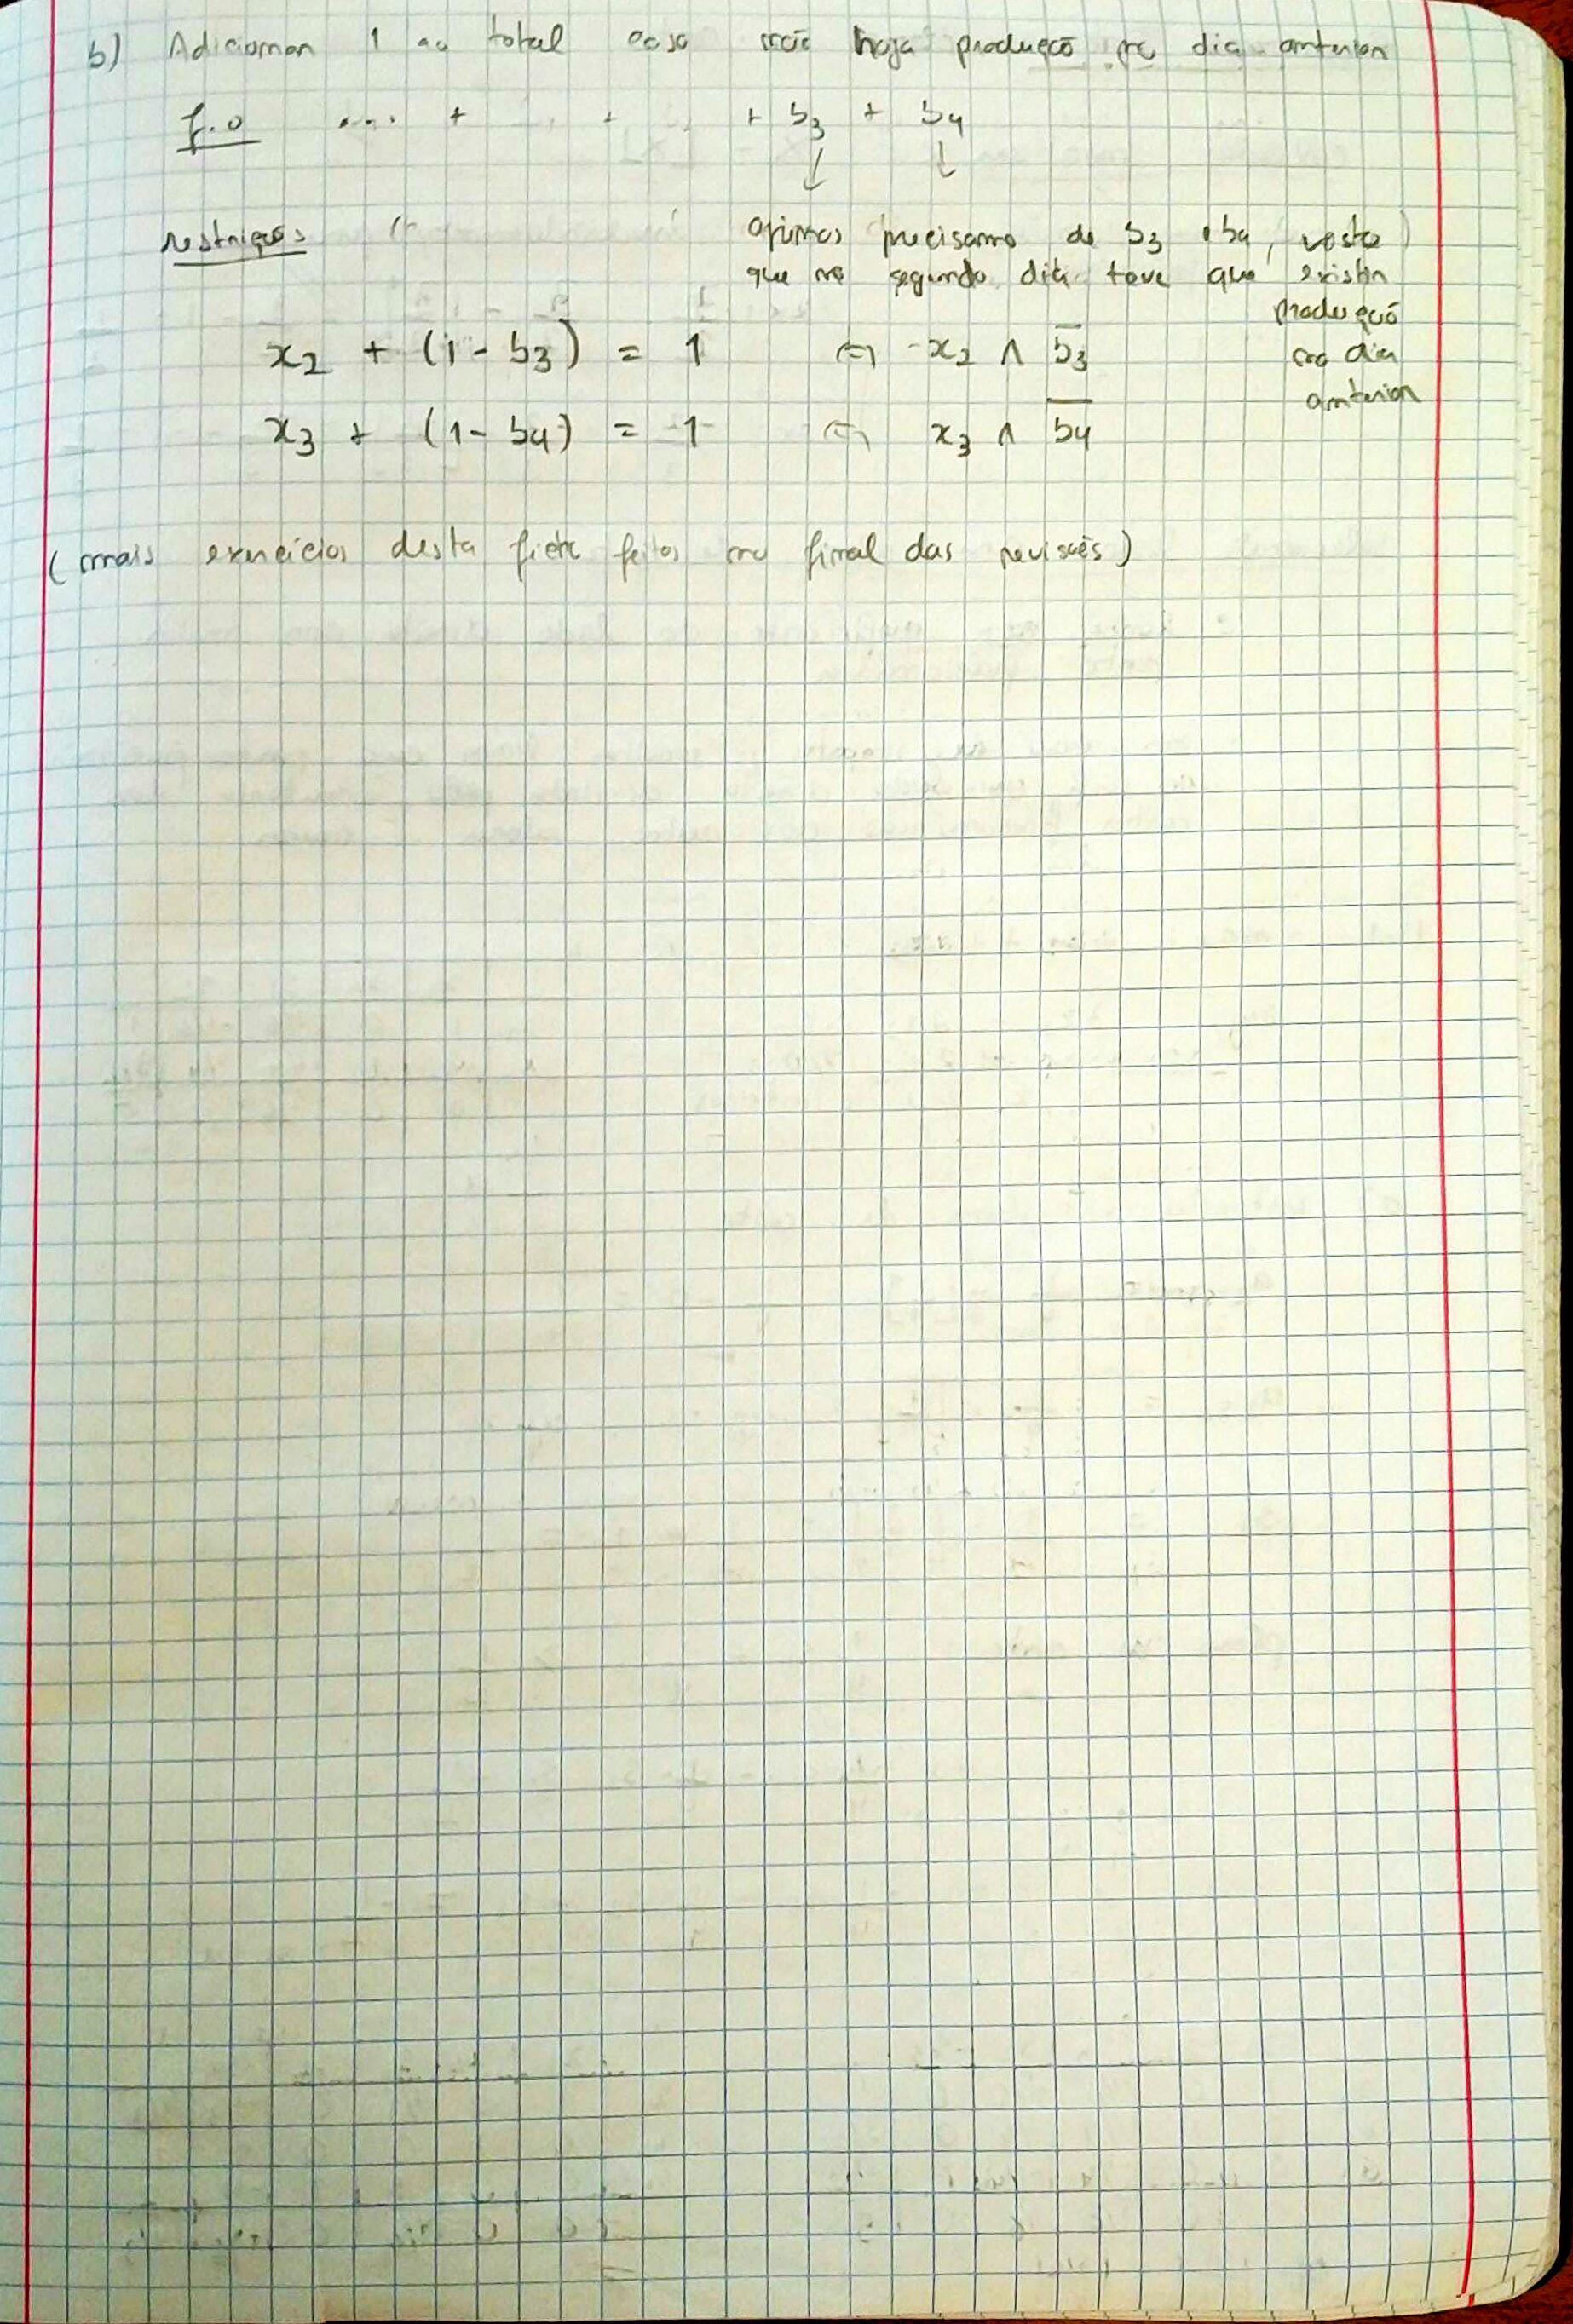 b) Adicionar 1 ao total caso não haja produção no dia anterior
f.o .... + + + b3 + b4
↓ ↓
restrições ( apenas precisamos de b3 e b4, visto
que no segundo dia teve que existir
produção
x2 + (1 - b3) = 1 ⇔ x2 ∧ b̅3̅ no dia
anterior
x3 + (1 - b4) = 1 ⇔ x3 ∧ b̅4̅
(mais exercícios desta ficha feitos no final das revisões)